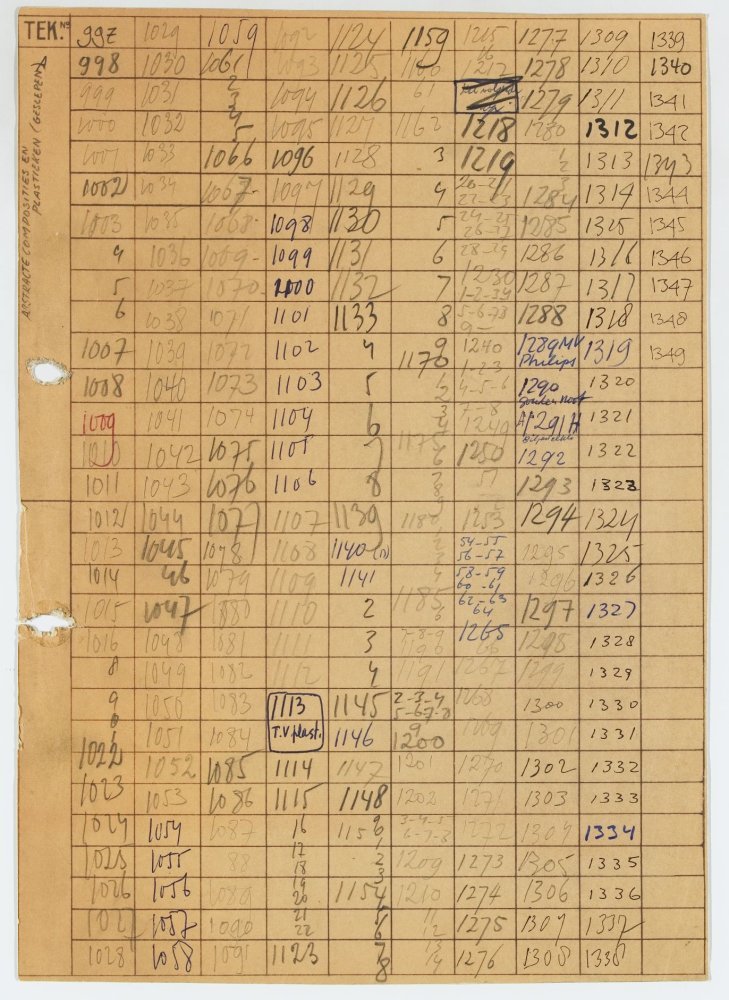 TEK.№ 997 1029 1059 1092 1124 1159 1215 1277 1309 1339
ABSTRACTE COMPOSITIES EN
PLASTIEKEN (GESLEPEN)
998 1030 1061 1093 1125 1160 16 1217 1278 1310 1340
999 1031 2 3 1094 1126 61 1279 1311 1341
1000 1032 4 5 1095 1127 1162 1218 1280 1312 1342
1001 1033 1066 1096 1128 3 1219 1 2 1313 1343
1002 1034 1067- 1097 1129 4 20-21 22-23 3 1284 1314 1344
1003 1035 1068- 1098 1130 5 24-25 26-27 1285 1315 1345
4 1036 1069- 1099 1131 6 28-29 1286 1316 1346
5 1037 1070- 1100 1132 7 1230 1-2-34 1287 1317 1347
6 1038 1071 1101 1133 8 5-6-78 9- 1288 1318 1348
1007 1039 1072 1102 4 9 1170 1240 1-23 1289 MV Philips 1319 1349
1008 1040 1073 1103 5 1 2 4-5-6 1290 1320
1009 1041 1074 1104 6 3 4 7-8 1249 1291 H 1321
1010 1042 1075 1105 7 1175 6 1250 1292 1322
1011 1043 1076 1106 8 51 1293 1323
1012 1044 1077 1107 1139 1180 1253 1294 1324
1013 1045 1078 1108 1140 54-55 56-57 1295 1325
1014 46 1079 1109 1141 58-59 60-61 1296 1326
1015 1047 1080 1110 2 1185 6 62-63 64 1297 1327
1016 1048 1081 1111 3 7-8-9 1190 1265 66 1298 1328
8 1049 1082 1112 4 1191 1267 1299 1329
9 1050 1083 1113 1145 2-3-4 5-6-7-8 1268 1300 1330
1051 1084 T.V plast. 1146 9 1200 1269 1301 1331
1022 1052 1085 1114 1147 1201 1270 1302 1332
1023 1053 1086 1115 1148 1202 1271 1303 1333
1024 1054 1087 16 9 1150 3-4-5 6-7-8 1272 1304 1334
1025 1055 88 17 18 1 2 1209 1273 1305 1335
1026 1056 1089 19 20 3 1154 1210 1274 1306 1336
1027 1057 1090 21 22 5 6 11 12 1275 1307 1337
1028 1058 1091 1123 7 8 13 14 1276 1308 1338